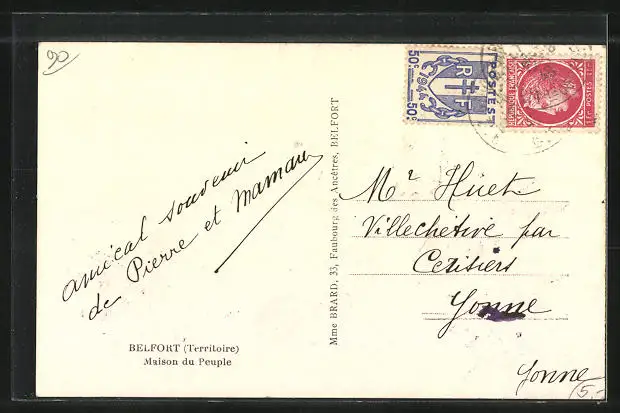 90
amical souvenir
de Pierre et Maman
BELFORT (Territoire)
Maison du Peuple
Mme BRARD, 33, Faubourg des Ancêtres, BELFORT
50c POSTES 50c
RF
1944
REPUBLIQUE FRANÇAISE
1F POSTES 1F
Mr Huet
Villechétive par
Cerisiers
Yonne
Yonne
5.-